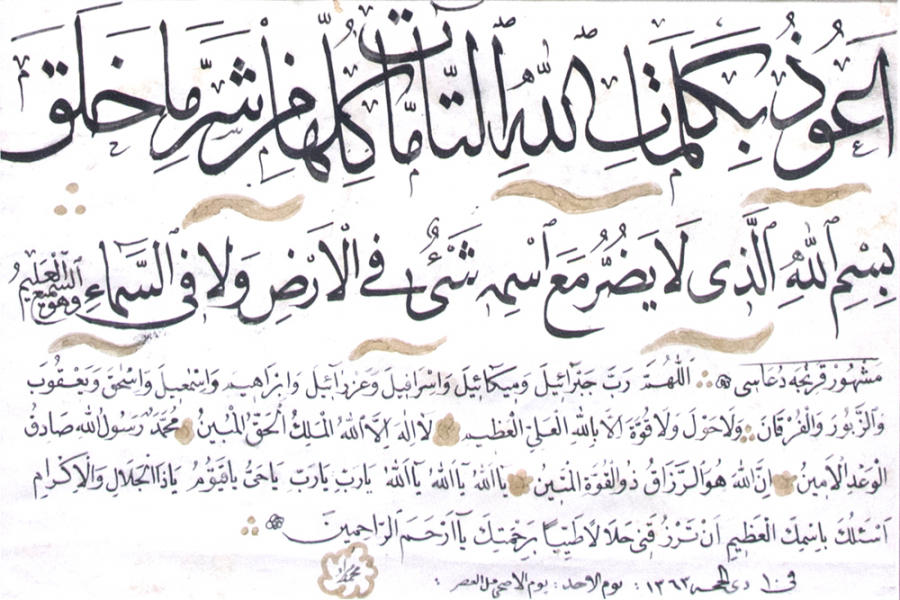 اَعُوذُ بِكَلِمَاتِ اللّٰهِ التَّامَّاتِ كُلِّهَا مِنْ شَرِّ مَا خَلَقَ
بِسْمِ اللّٰهِ الَّذِى لَا يَضُرُّ مَعَ اسْمِهِ شَيْءٌ فِى الْاَرْضِ وَلَا فِى السَّمَاءِ وَهُوَ السَّمِيعُ الْعَلِيمُ
مشهور قرنجه دعاسى اَللّٰهُمَّ رَبَّ جَبْرَائِيلَ وَمِيكَائِيلَ وَاِسْرَافِيلَ وَعَزْرَائِيلَ وَاِبْرَاهِيمَ وَاِسْمٰعِيلَ وَاِسْحٰقَ وَيَعْقُوبَ
وَالزَّبُورَ وَالْفُرْقَانَ وَلَا حَوْلَ وَلَا قُوَّةَ اِلَّا بِاللّٰهِ الْعَلِىِّ الْعَظِيمِ لَا اِلٰهَ اِلَّا اللّٰهُ الْمَلِكُ الْحَقُّ الْمُبِينُ مُحَمَّدٌ رَسُولُ اللّٰهِ صَادِقُ
الْوَعْدِ الْاَمِينُ اِنَّ اللّٰهَ هُوَ الرَّزَّاقُ ذُو الْقُوَّةِ الْمَتِينُ يَا اَللّٰهُ يَا اَللّٰهُ يَا اَللّٰهُ يَا رَبِّ يَا رَبِّ يَا حَىُّ يَا قَيُّومُ يَا ذَا الْجَلَالِ وَالْاِكْرَامِ
اَسْئَلُكَ بِاِسْمِكَ الْعَظِيمِ اَنْ تَرْزُقَنِى حَلَالًا طَيِّبًا بِرَحْمَتِكَ يَا اَرْحَمَ الرَّاحِمِينَ
فى ١٠ ذى الحجه ١٣٦٣ : يوم الاحد : يوم الاضحى من العصر :